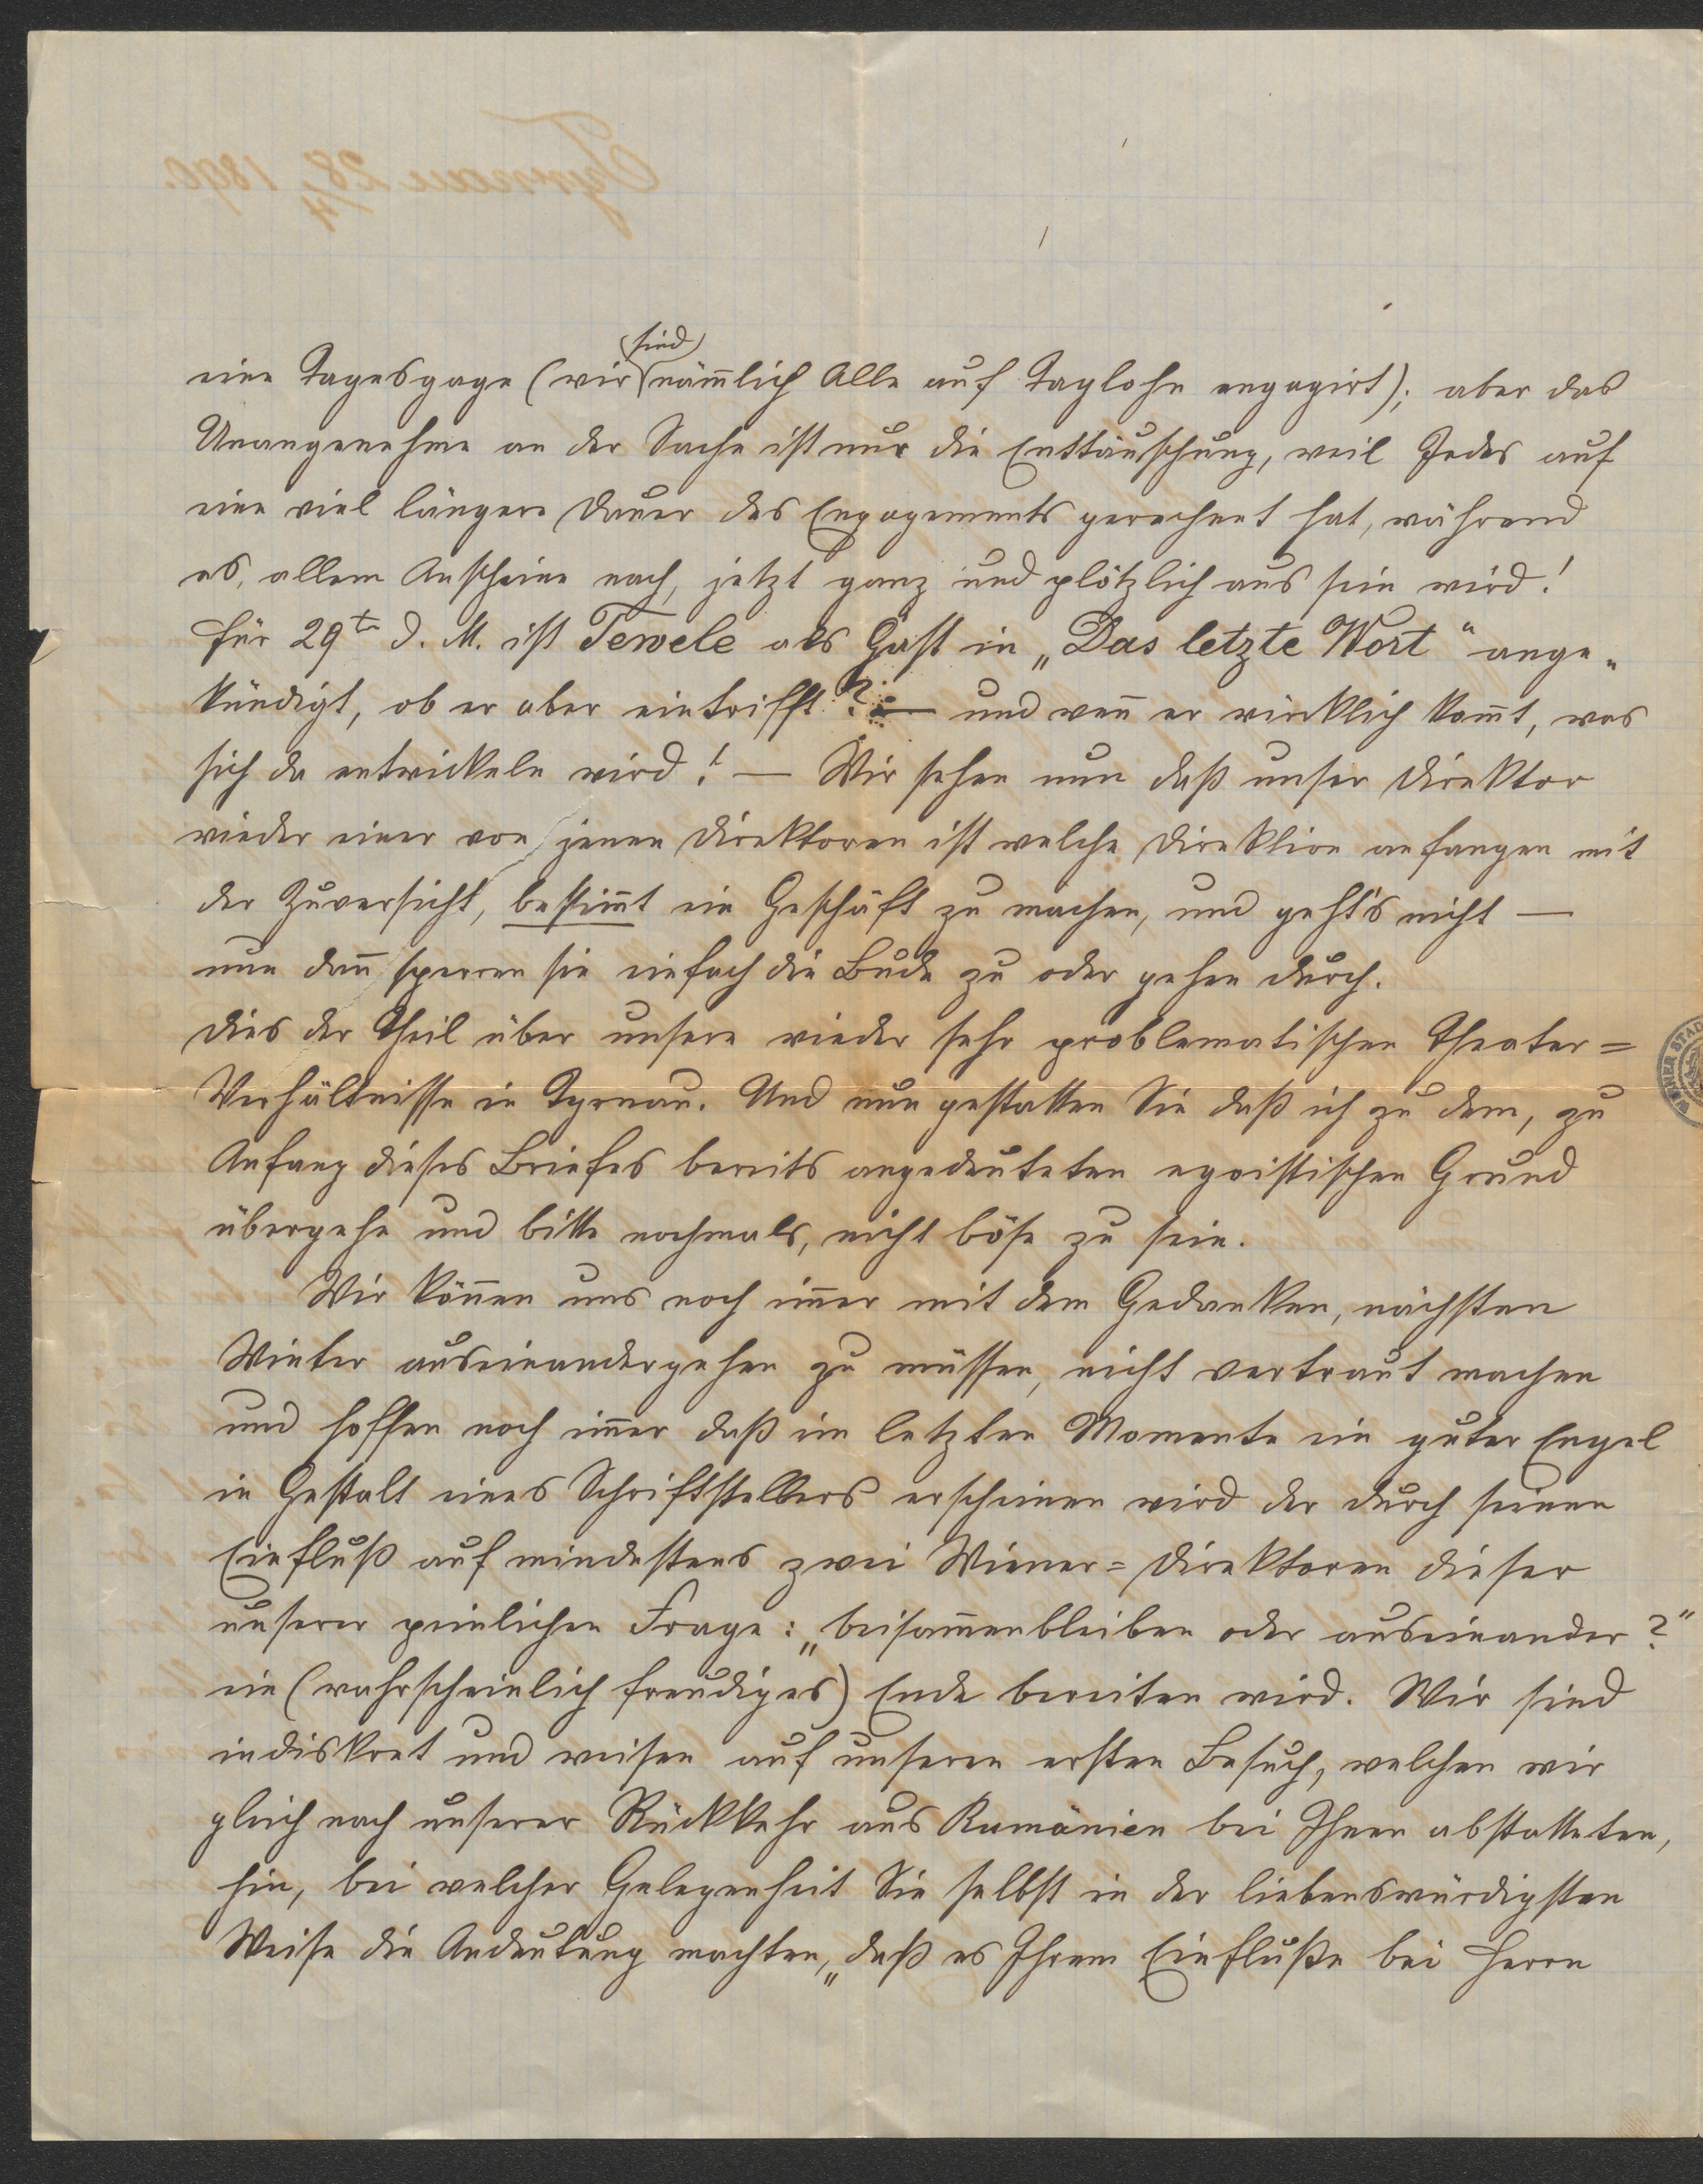 Tyrnau 28/4 1890.
sind
eine Tagesgage (wir nämlich Alle auf Taglohn engagirt); aber das
Unangenehme an der Sache ist nur die Enttäuschung, weil Jedes auf
eine viel längere Dauer des Engagements gerechnet hat, während
es, allem Anscheine nach, jetzt ganz und plötzlich aus sein wird!
Für 29te d. M. ist Tewele als Gast in „Das letzte Wort“ ange„
kündigt, ob er aber eintrifft? — und weñ er wirklich kom̃t, was
sich da entwickeln wird! — Wir sehen nun daß unser Direktor
wieder einer von jenen Direktoren ist welche Direktion anfangen mit
der Zuversicht, bestim̃t ein Geschäft zu machen, und geht's nicht —
nun dañ sperren sie einfach die Bude zu oder gehen durch.
Dies der Theil über unsere wieder sehr problematischen Theater=
Verhältnisse in Tyrnau. Und nun gestatten Sie daß ich zu dem, zu
Anfang dieses Briefes bereits angedeuteten egoistischen Grund
übergehe und bitte nochmals, nicht böse zu sein.
Wir köñen uns noch im̃er mit dem Gedanken, nächsten
Winter auseinandergehen zu müssen, nicht vertraut machen
und hoffen noch im̃er daß im letzten Momente ein guter Engel
in Gestalt eines Schriftstellers erscheinen wird der durch seinen
Einfluß auf mindestens zwei Wiener=Direktoren dieser
unserer peinlichen Frage: „beisam̃enbleiben oder auseinander?“
ein (wahrscheinlich freudiges) Ende bereiten wird. Wir sind
indiskret und weisen auf unseren ersten Besuch, welchen wir
gleich nach unserer Rückkehr aus Rumänien bei Ihnen abstatteten,
hin, bei welcher Gelegenheit Sie selbst in der liebenswürdigsten
Weise die Andeutung machten, „daß es Ihrem Einfluße bei Herrn